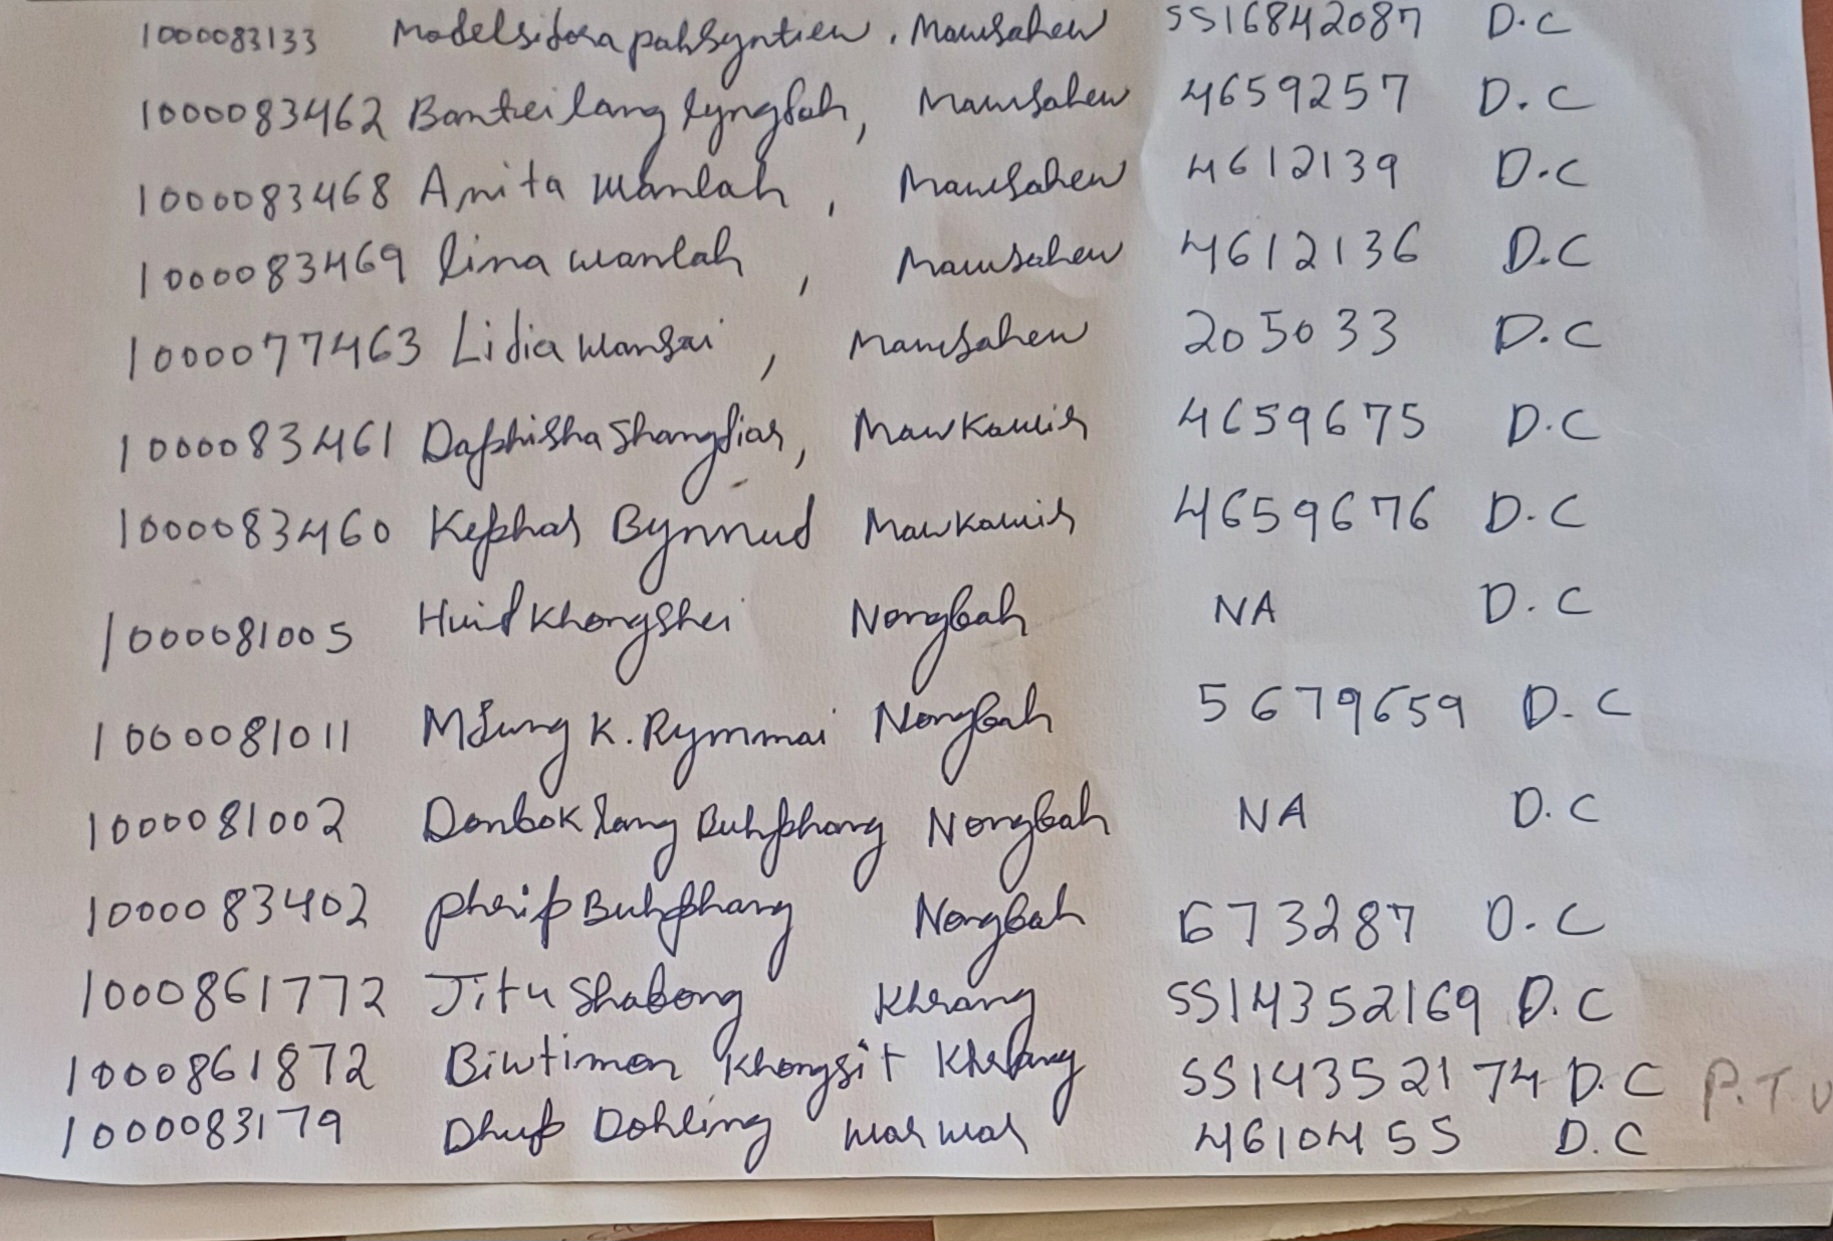 1000083133 Modelsidora pahsyntiew, Mawsahew SS16842087 D.C
1000083462 Banteilang lyngkah, Mawsahew 4659257 D.C
1000083468 Anita Wanlah, Mawsahew 4612139 D.C
1000083469 lina wanlah, Mawsahew 4612136 D.C
1000077463 Lidia Wansai, Mawsahew 205033 D.C
1000083461 Daphisha Shangdiar, Mawkawir 4659675 D.C
1000083460 Kephas Bynnud Mawkawir 4659676 D.C
1000081005 Khongshei Nongbah NA D.C
1000081011 K. Rymmai Nongbah 5679659 D.C
1000081002 Donbok lang Buhphang Nongbah NA D.C
1000083402 pherip Buhphang Nongbah 673287 D.C
1000861772 Jitu Shabong Khrang SS14352169 D.C
1000861872 Biwtimon Khongsit Khrang SS14352174 D.C P.T.O
1000083179 Dhup Dohling war war 4610455 D.C